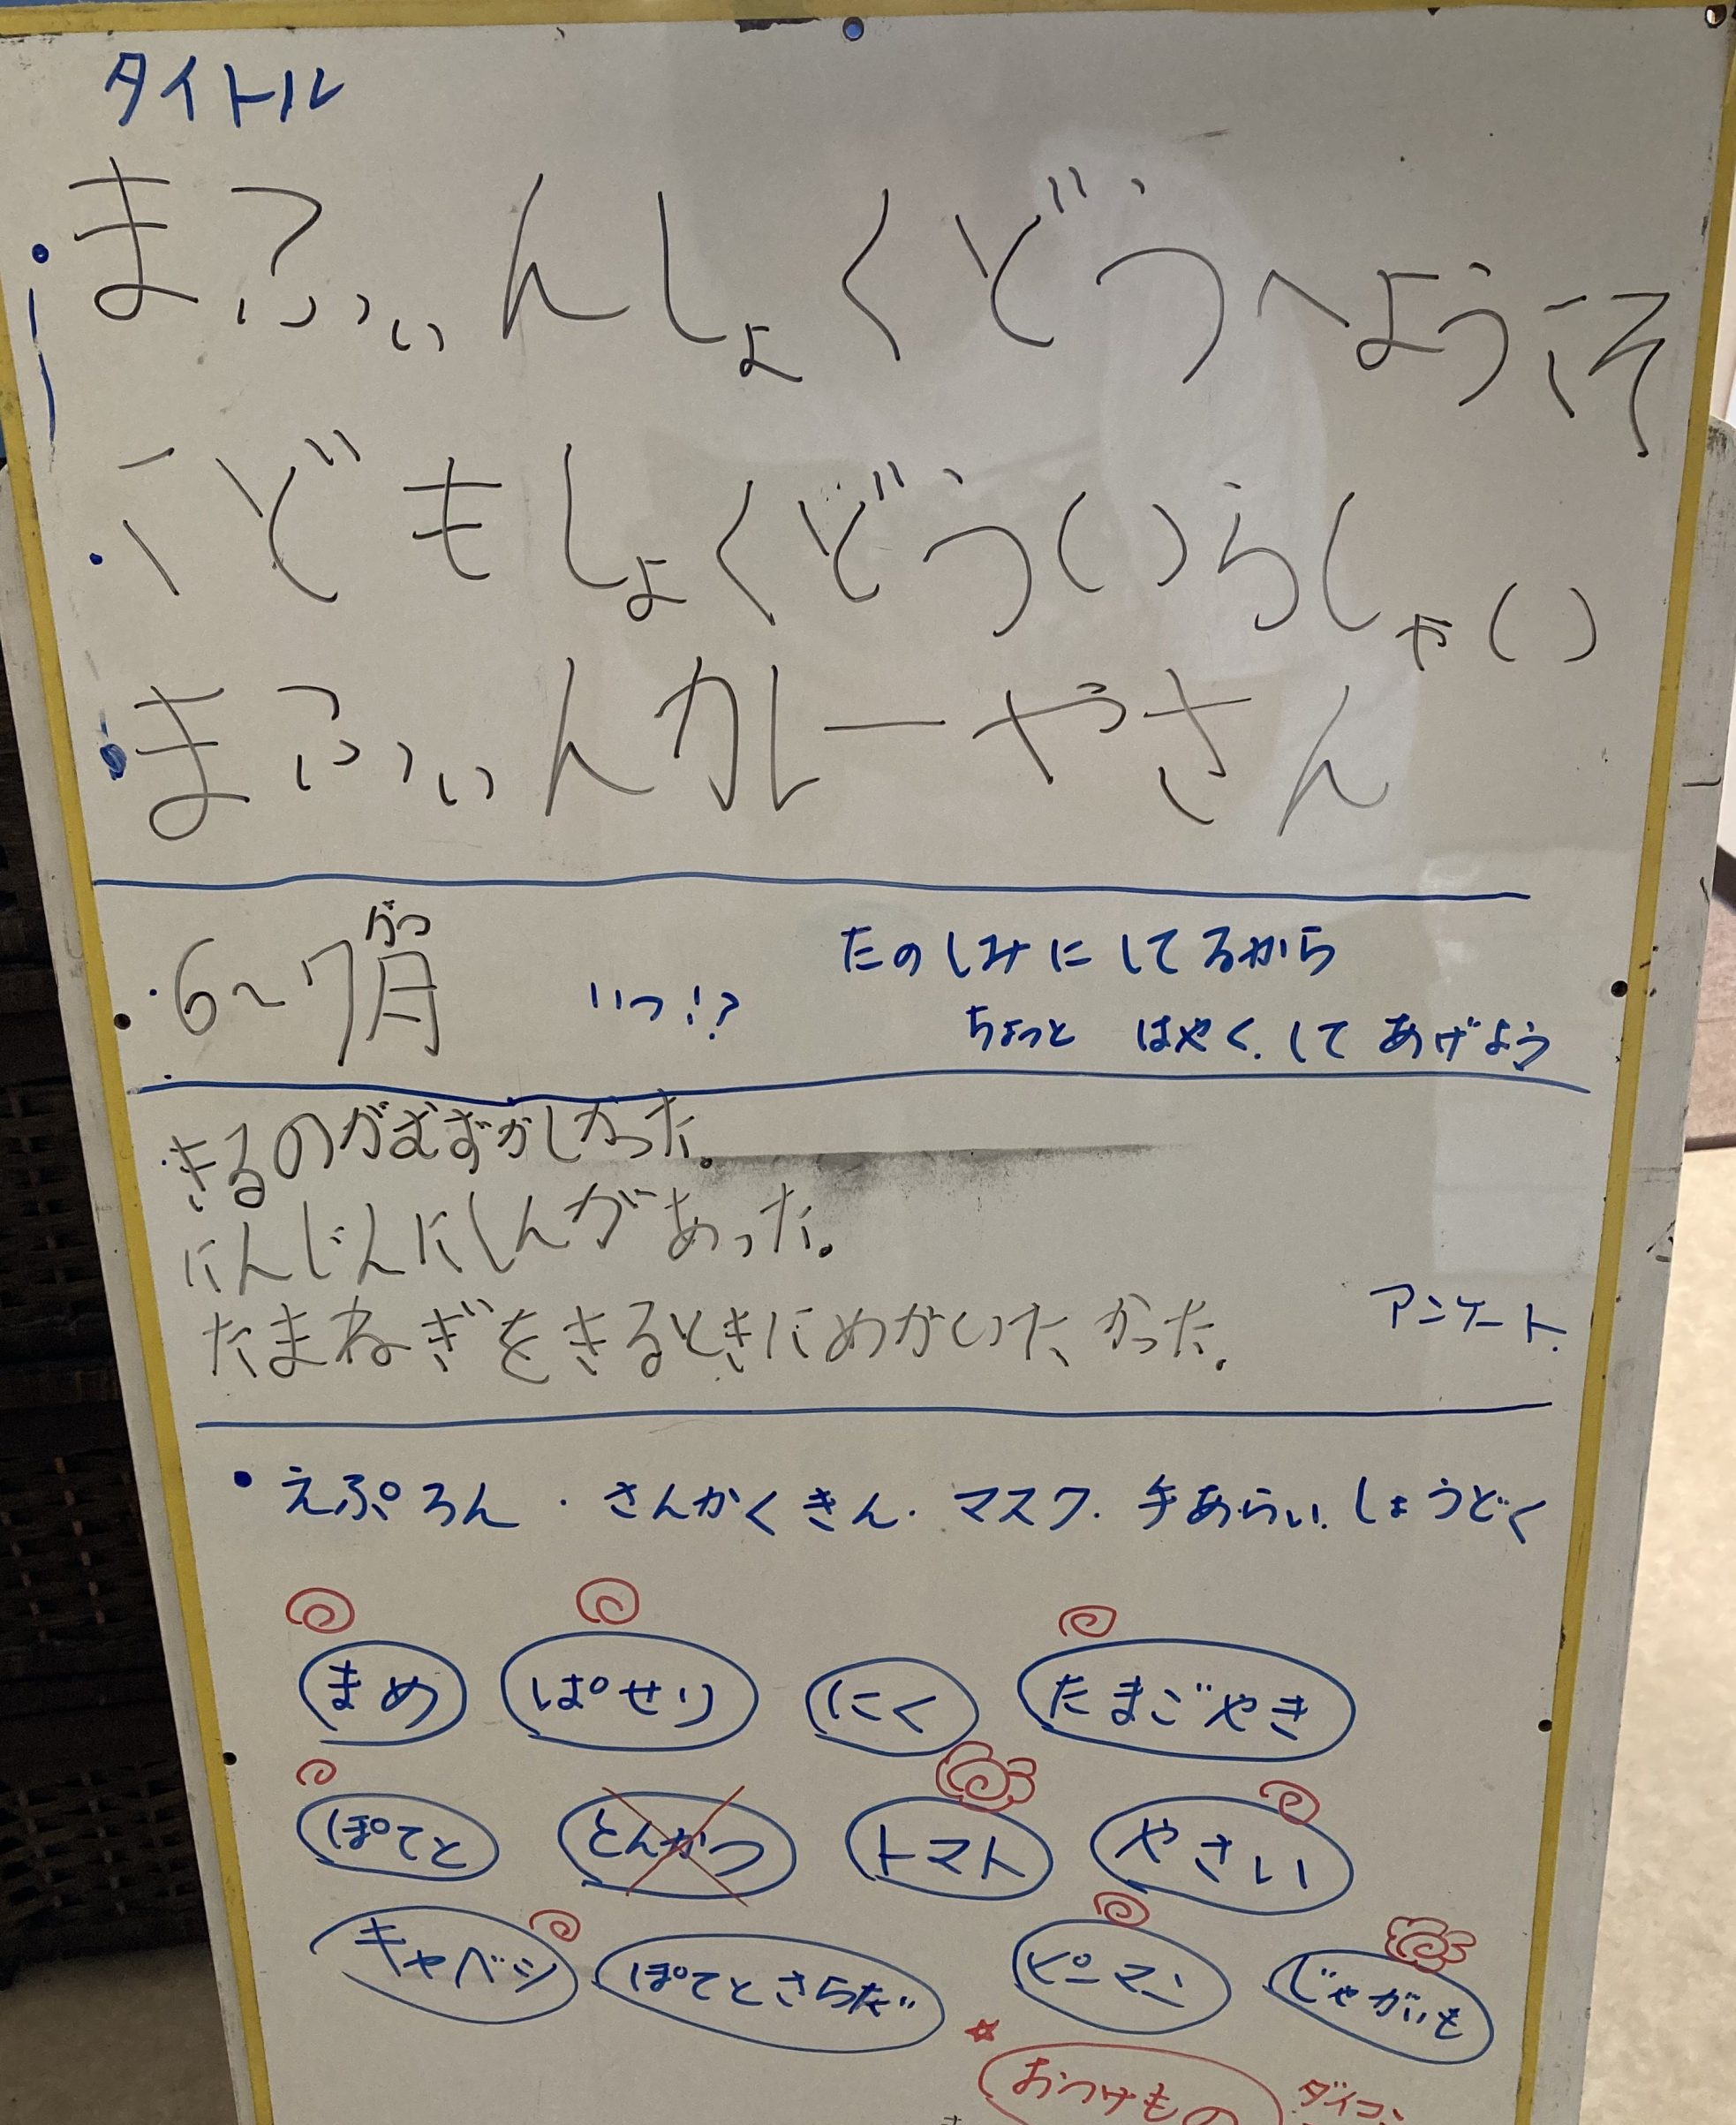 タイトル
・まふぃんしょくどうへようこそ
・こどもしょくどういらしゃい
・まふぃんカレーやさん
・6~7月 がつ
いつ!?
たのしみにしてるから
ちょっと はやく.してあげよう
・きるのがむずかしかった。
にんじんにしんがあった。
たまねぎをきるときにめがいたかった。
アンケート
・えぷろん・さんかくきん.マスク.手あらい.しょうどく
まめ ぱせり にく たまごやき
ぽてと とんかつ トマト やさい
キャベツ ぽてとさらだ ピーマン じゃがいも
★ おつけもの ダイコン